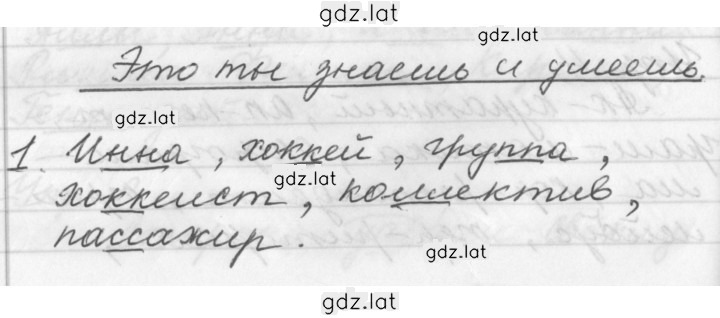 gdz.lat
gdz.lat
Это ты знаешь и умеешь.
gdz.lat
1. Инна, хоккей, группа,
gdz.lat
хоккеист, коллектив,
пассажир.
gdz.lat
gdz.lat